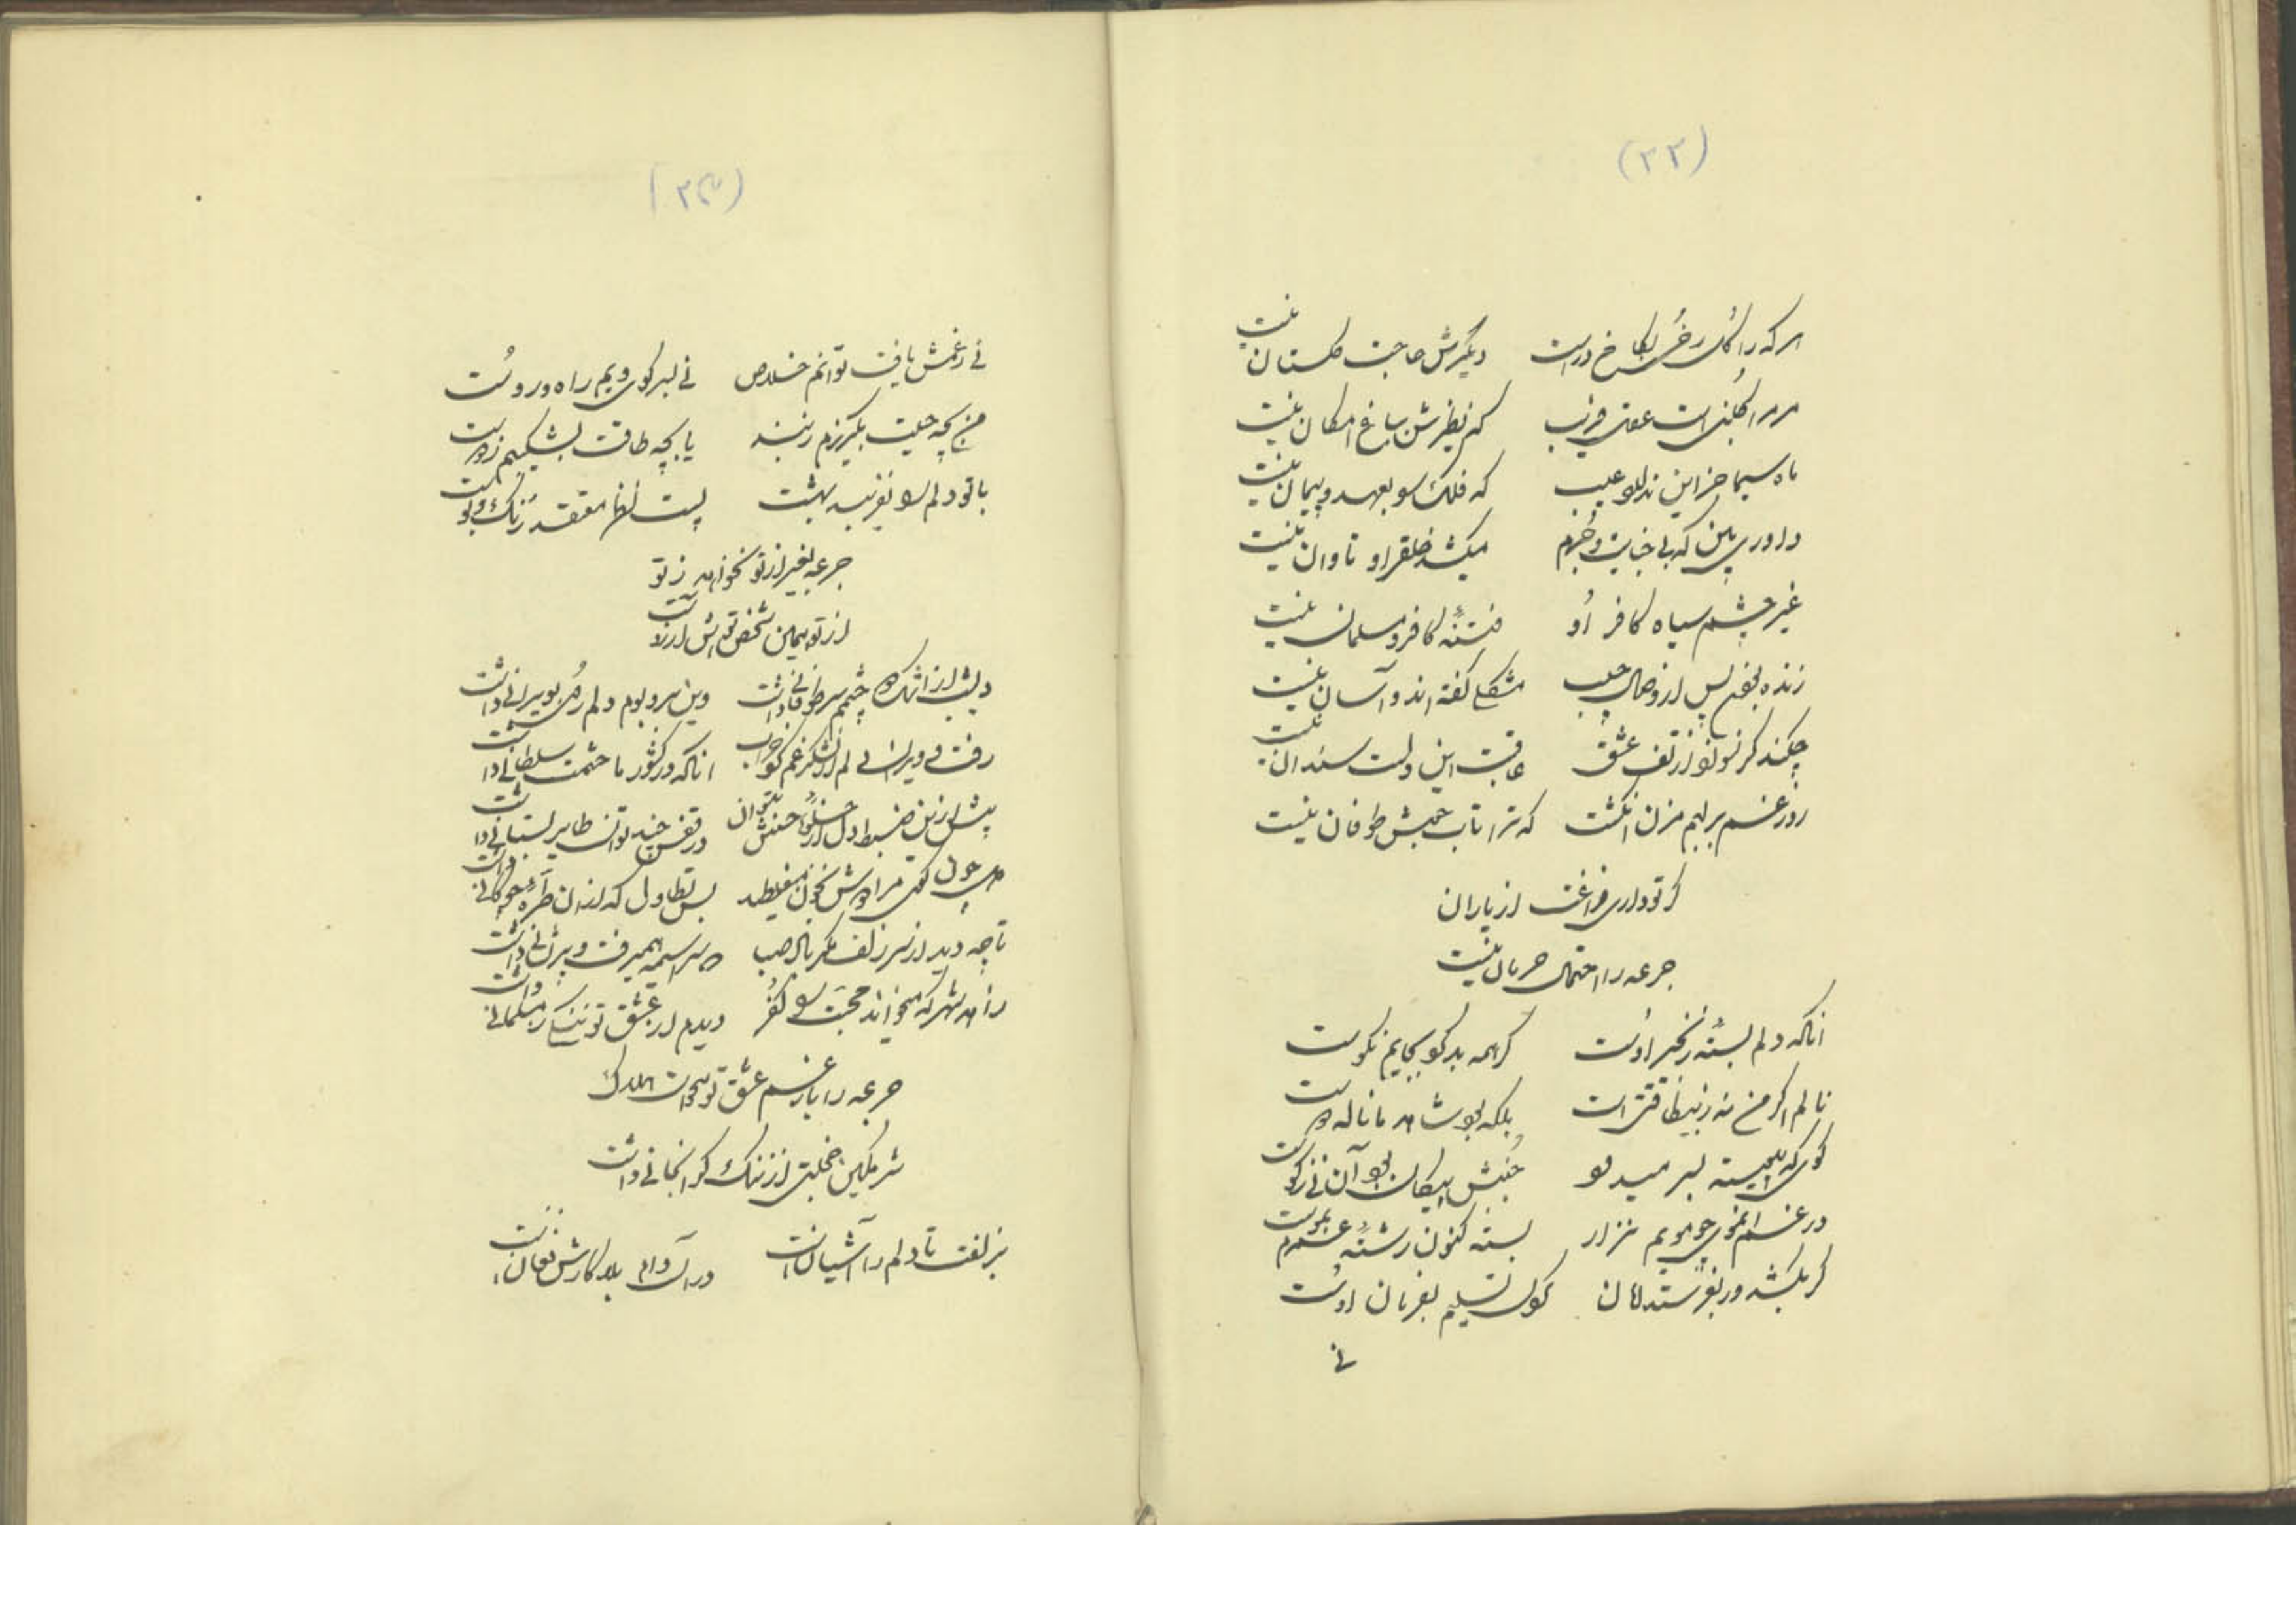 (۲۲)
هر که را گل رخی بکاخ در است دیگرش حاجت گلستان نیست
مر مرا گلبنی است عقل فریب که نظیرش بباغ امکان نیست
ماه سیما جز این ندارد عیب که فلک سا بعهد و پیمان نیست
داوری بین که بی جنایت و جرم میکشد خلق را و تاوان نیست
غیر چشم سیاه کافر او فتنه کافر و مسلمان نیست
زنده بودن پس از وصال حبیب مشکل گفته اند و آسان نیست
چکند گر نسوزد از تف عشق عاقبت این دلست سندان نیست
روز غم بر لبم مزن انگشت که ترا تاب جنبش طوفان نیست
گر تو داری فراغت از یاران
جرعه را احتمال حرمان نیست
آنکه دلم بسته زنجیر اوست گر همه بد گو بجایم نکوست
نالم اگر من نه ز بیطاقتی است بلکه بود شاهد ما ناله دوست
گوی که پیوسته بسر میدود
در غم آن موی چو مویم نزار بسته کنون رشته عمرم بموست
گر بکشد ور بفرستد امان گوش تسلیم بفرمان اوست
نی
(۲۳)
نی ز غمش یافت توانم خلاص نی بسر کوی ویم راه و روست
من بچه حیلت بگریزم ز بند یا بچه طاقت بشکیبم ز دوست
با تو دلم را نفریبد بهشت نیست معتقد رنگ و بوست
جرعه بغیر از تو نخواهد ز تو
از تو همین شخص تواش آرزوست
دیشب از اشک چشمم سر طوفانی داشت وین سر و بوم دلم رو بویرانی داشت
رفت و ویران دلم از لشکر غم گو خراب آنکه در کشور ما حشمت سلطانی داشت
پیش از این ضبط دل از جلوه حسنش نتوان در قفس چند توان طایر بستانی داشت
دل چون گوی مرا بخون میغلطد بس تطاول که از آن طره چوگانی داشت
تا چه دید از سر زلف مگر باد صبا که سراسیمه همیرفت و پریشانی داشت
زاهد شهر که میخواند محبت را کفر دیدم از عشق تو ننگ ز مسلمانی داشت
جرعه را بار غم عشق تو میخواست هلاک
شرمگین خجلتی از ننگ گرانجانی داشت
بزلفت تا دلم را آشیانست در آن دام بلا کارش فغانست